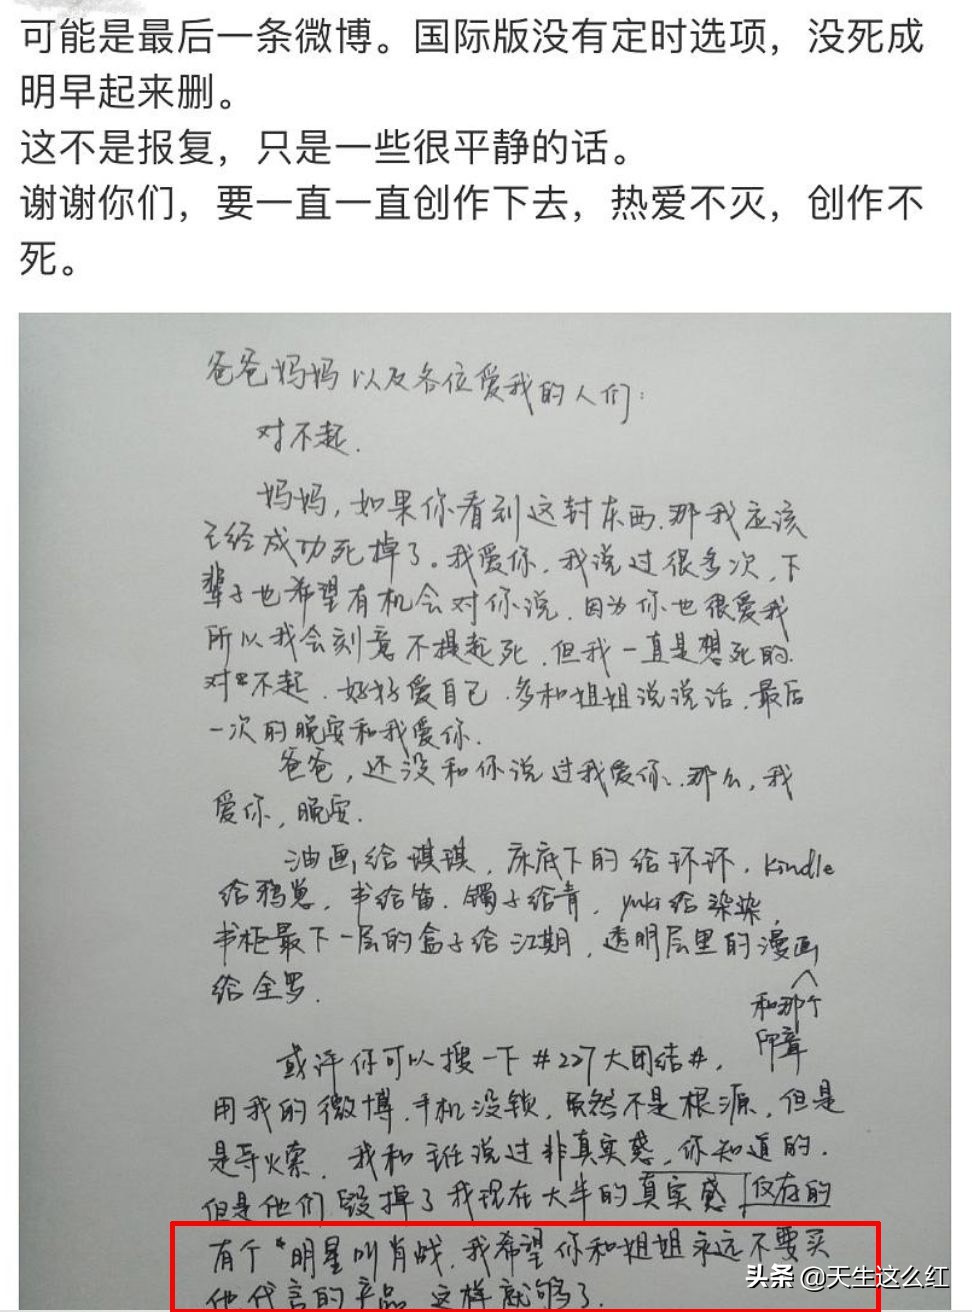 可能是最后一条微博。国际版没有定时选项，没死成
明早起来删。
这不是报复，只是一些很平静的话。
谢谢你们，要一直一直创作下去，热爱不灭，创作不
死。
爸爸妈妈以及各位爱我的人们：
对不起.
妈妈，如果你看到这封东西.那我应该
已经成功死掉了。我爱你.我说过很多次.下
辈子也希望有机会对你说.因为你也很爱我
所以我会刻意不提起死.但我一直是想死的.
对不起.好好爱自己.多和姐姐说说话.最后
一次的晚安和我爱你.
爸爸，还没和你说过我爱你.那么，我
爱你，晚安.
油画给琪琪，床底下的给环环，Kindle
给鸦崽，书给笛.镯子给青，yuki给染染，
书柜最下一层的盒子给江期，透明层里的漫画
和那个
印章
给全罗.
或许你可以搜一下#227大团结#，
用我的微博.手机没锁，虽然不是根源，但是
是导火索.我和主任说过非真实感，你知道的.
但是他们毁掉了我现在大半的真实感 仅存的
有个“明星叫肖战.我希望你和姐姐永远不要买
他代言的产品.这样就够了.
头条 @天生这么红